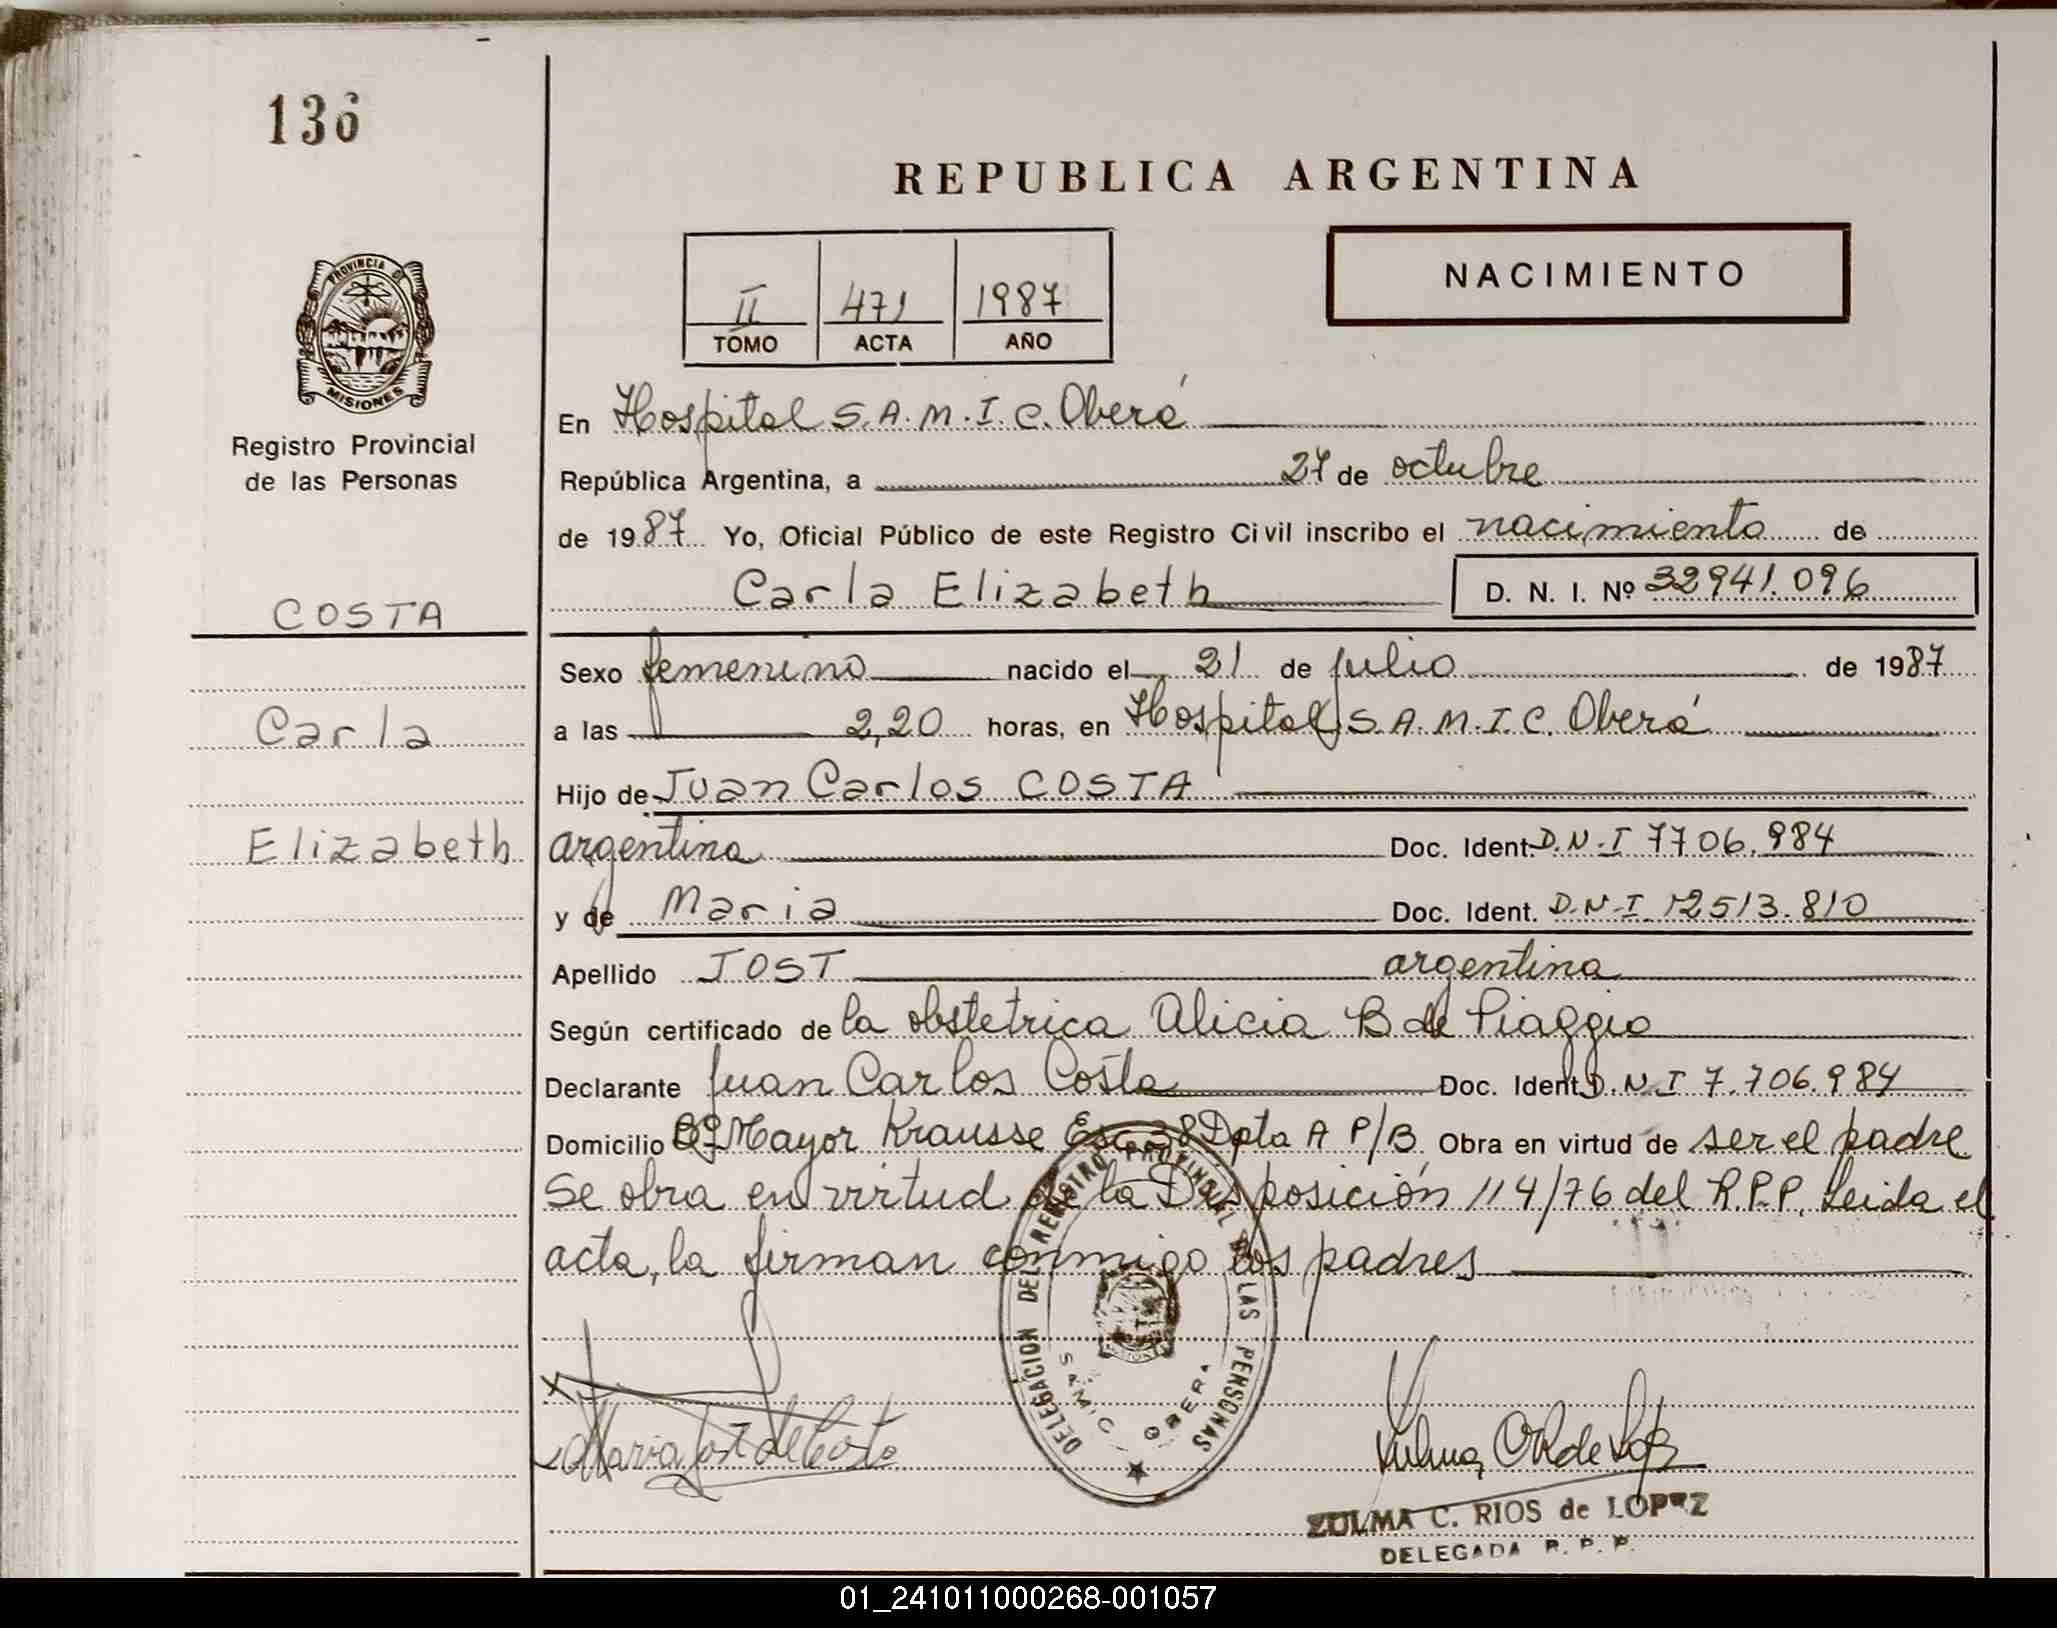 136
REPUBLICA ARGENTINA
PROVINCIA DE
MISIONES
Registro Provincial
de las Personas
II 471 1987
TOMO ACTA AÑO
NACIMIENTO
En Hospital S.A.M.I.C. Oberá
República Argentina, a 27 de octubre
de 1987 Yo, Oficial Público de este Registro Civil inscribo el nacimiento de
Carla Elizabeth D. N. I. Nº 32941.096
COSTA
Carla
Elizabeth
Sexo femenino nacido el 21 de julio de 1987
a las 2,20 horas, en Hospital S.A.M.I.C. Oberá
Hijo de Juan Carlos COSTA
argentina Doc. Ident. D.N.I 7706.984
y de Maria Doc. Ident. D.N.I 12513.810
Apellido JOST argentina
Según certificado de la obstetrica Alicia B de Piaggio
Declarante Juan Carlos Costa Doc. Ident. D.N.I 7.706.984
Domicilio Bº Mayor Krausse Esc 38 Dpto A P/B Obra en virtud de ser el padre
Se obra en virtud de la Disposición 114/76 del R.P.P. Leida el
acta, la firman conmigo los padres
DELEGACION DEL REGISTRO PROVINCIAL DE LAS PERSONAS
SAMIC OBERA
Maria Jost de Costa
ZULMA C. RIOS de LOPEZ
DELEGADA R. P. P.
01_241011000268-001057